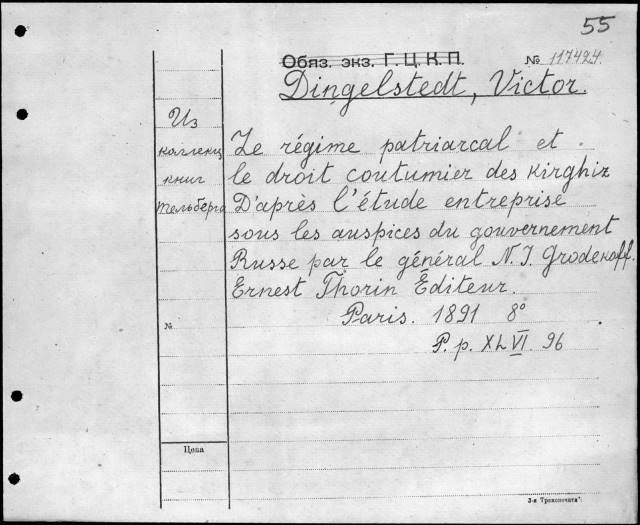 55
Обяз. экз. Г.Ц.К.П. № 117424.
Dingelstedt, Victor.
Из
коллекц
книг
Тельберга
Le régime patriarcal et
le droit coutumier des Kirghiz
D'après l'étude entreprise
sous les auspices du gouvernement
Russe par le général N. I. Grodekoff.
Ernest Thorin Éditeur.
Paris. 1891 8°
P.p. XLVI. 96
№
Цена
3-я Транспечать